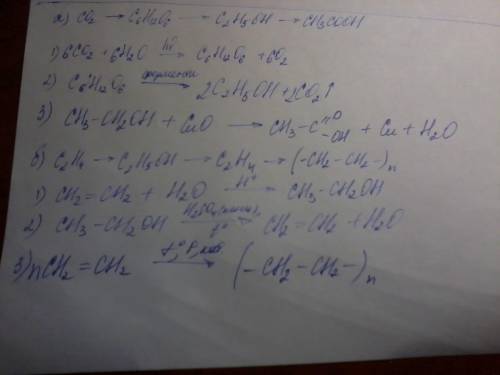 а) CO₂ → C₆H₁₂O₆ → C₂H₅OH → CH₃COOH
1) 6CO₂ + 6H₂O —hν→ C₆H₁₂O₆ + 6O₂
2) C₆H₁₂O₆ —ферменты→ 2C₂H₅OH + 2CO₂↑
3) CH₃-CH₂OH + CuO → CH₃-C(=O)-OH + Cu + H₂O
б) C₂H₄ → C₂H₅OH → C₂H₄ → (-CH₂-CH₂-)n
1) CH₂=CH₂ + H₂O —H⁺→ CH₃-CH₂OH
2) CH₃-CH₂OH —H₂SO₄(конц), t°→ CH₂=CH₂ + H₂O
3) nCH₂=CH₂ —t°, P, кат→ (-CH₂-CH₂-)n